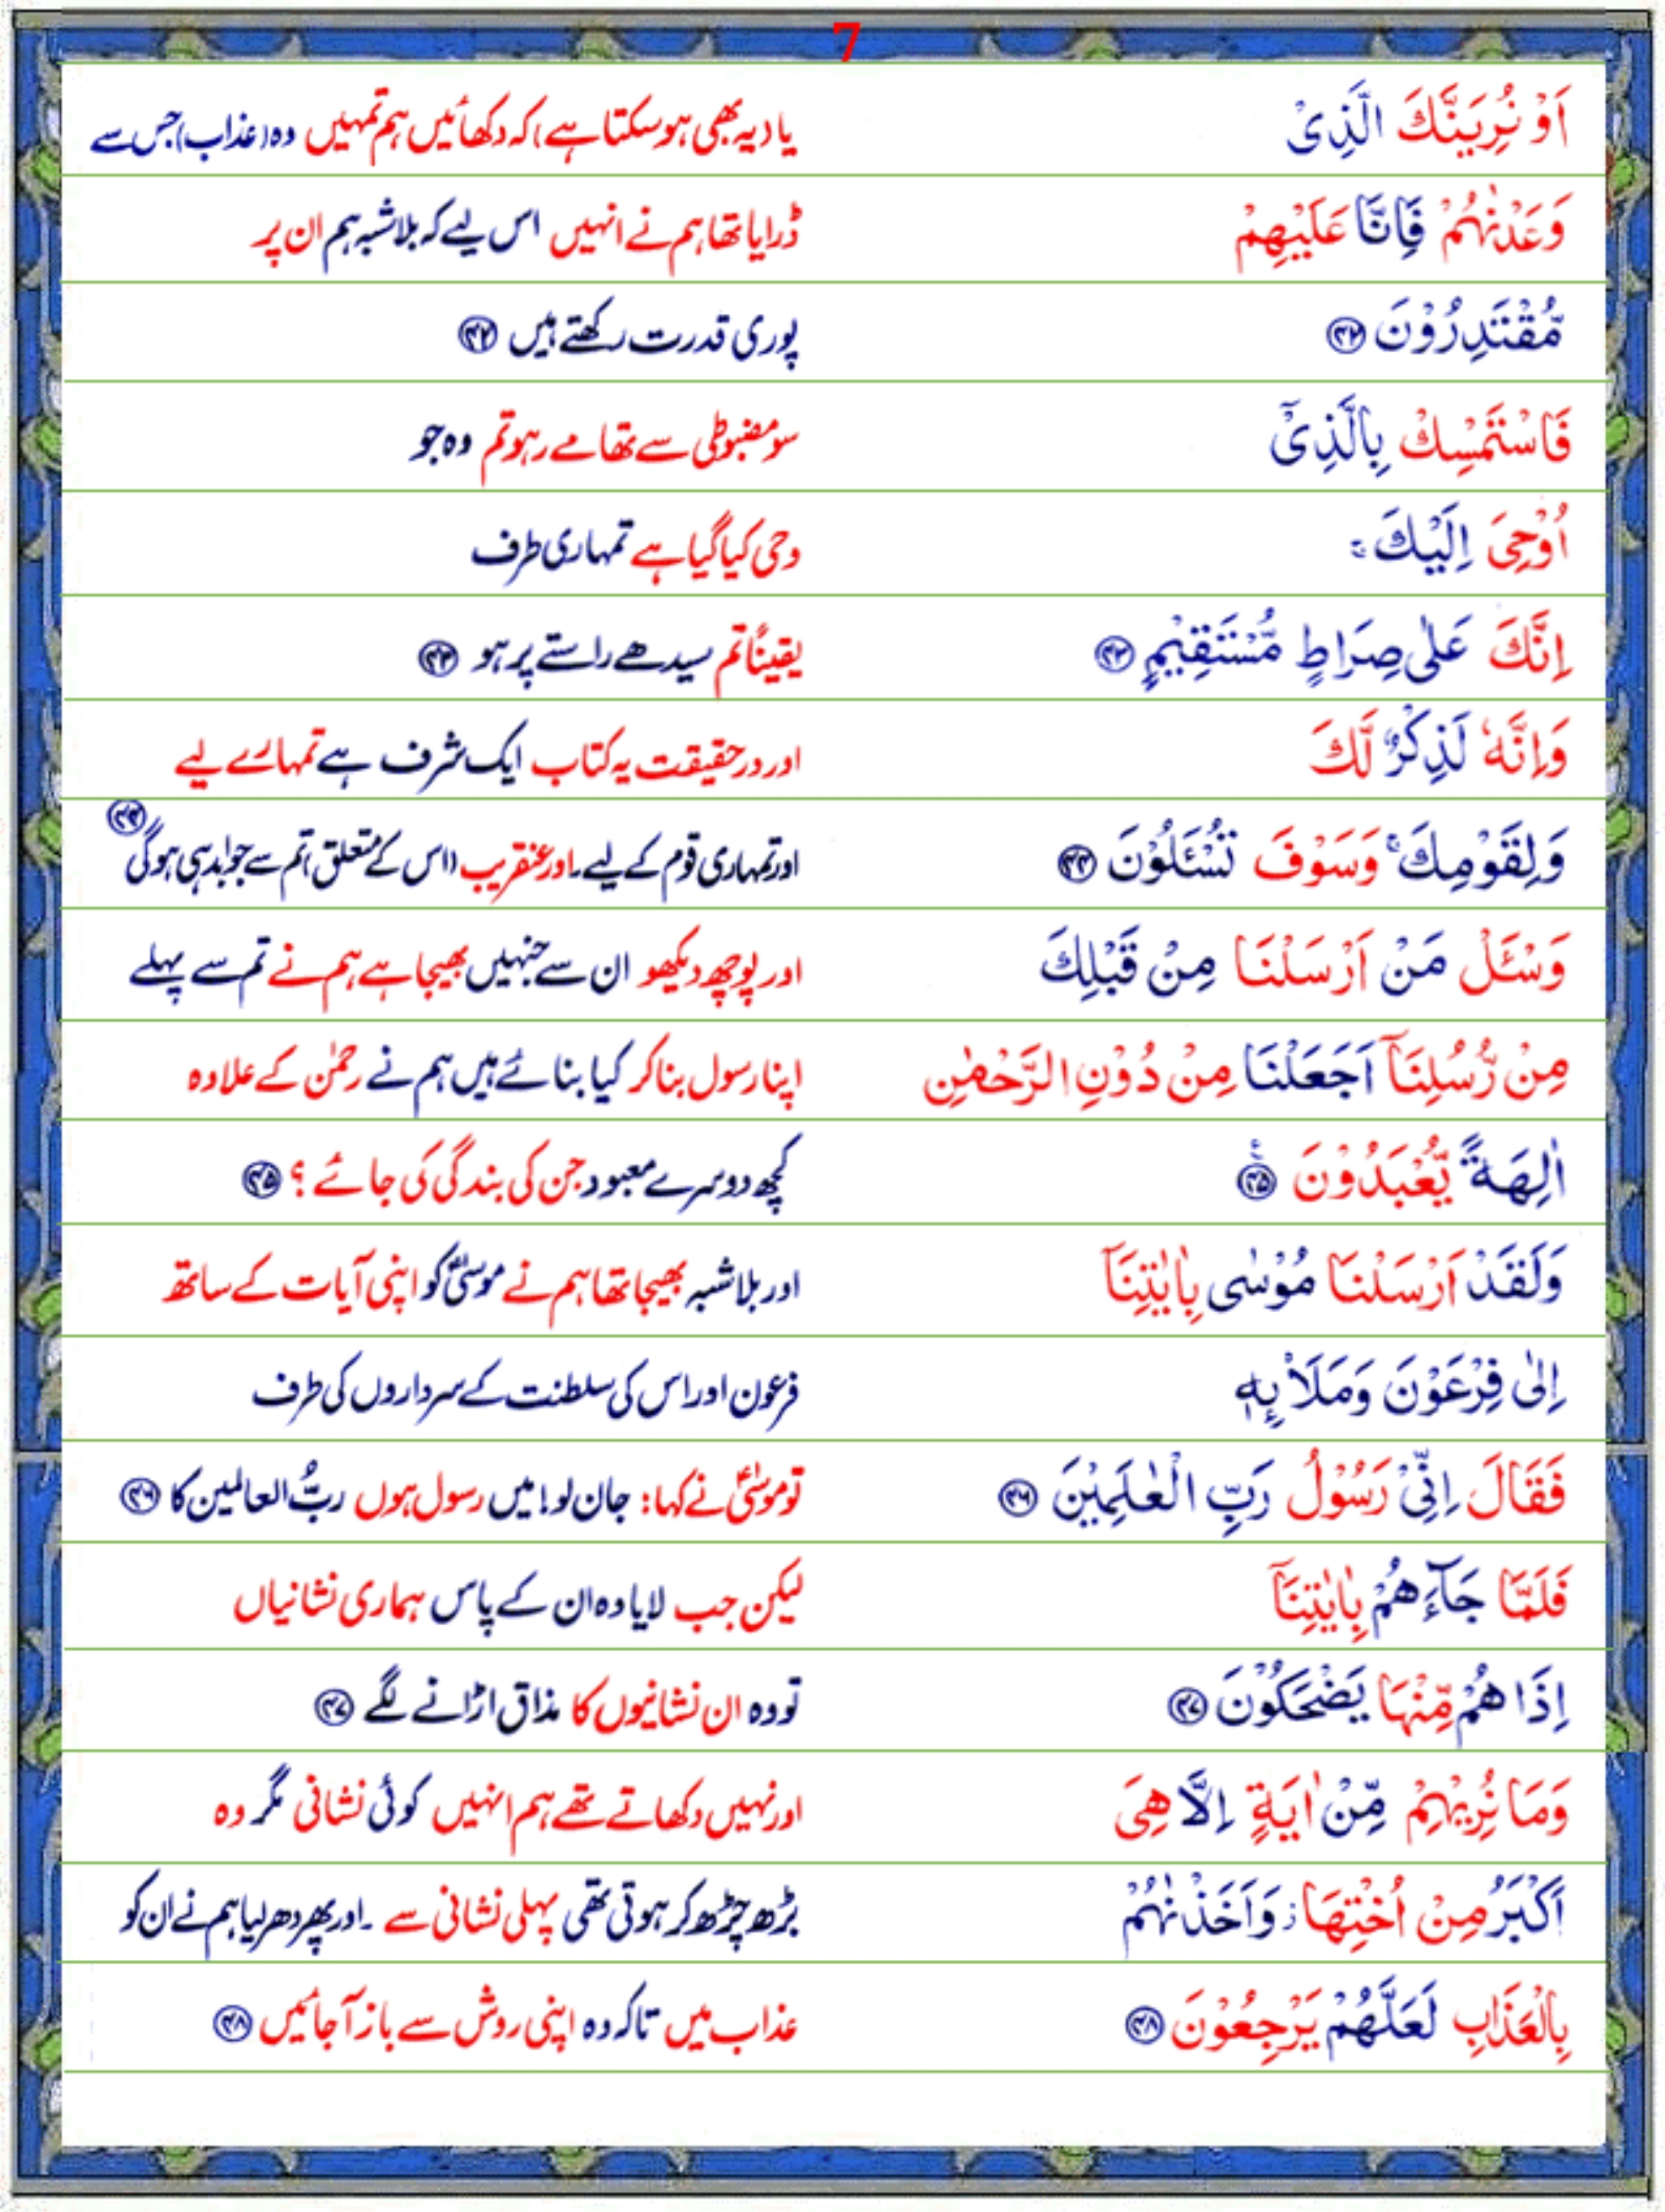 7
اَوْ نُرِيَنَّكَ الَّذِىْ یا (یہ بھی ہوسکتا ہے) کہ دکھائیں ہم تمہیں وہ (عذاب) جس سے
وَعَدْنٰهُمْ فَاِنَّا عَلَيْهِمْ ڈرایا تھا ہم نے انہیں اس لیے کہ بلاشبہ ہم ان پر
مُّقْتَدِرُوْنَ ﴿۴۲﴾ پوری قدرت رکھتے ہیں ﴿۴۲﴾
فَاسْتَمْسِكْ بِالَّذِىْۤ سو مضبوطی سے تھامے رہو تم وہ جو
اُوْحِىَ اِلَيْكَ ۚ وحی کیا گیا ہے تمہاری طرف
اِنَّكَ عَلٰى صِرَاطٍ مُّسْتَقِيْمٍ ﴿۴۳﴾ یقیناً تم سیدھے راستے پر ہو ﴿۴۳﴾
وَاِنَّهٗ لَذِكْرٌ لَّكَ اور درحقیقت یہ کتاب ایک شرف ہے تمہارے لیے
وَلِقَوْمِكَ ۚ وَسَوْفَ تُسْـَٔلُوْنَ ﴿۴۴﴾ اور تمہاری قوم کے لیے۔ اور عنقریب (اس کے متعلق) تم سے جوابدہی ہوگی ﴿۴۴﴾
وَسْـَٔلْ مَنْ اَرْسَلْنَا مِنْ قَبْلِكَ اور پوچھ دیکھو ان سے جنہیں بھیجا ہے ہم نے تم سے پہلے
مِنْ رُّسُلِنَاۤ اَجَعَلْنَا مِنْ دُوْنِ الرَّحْمٰنِ اپنا رسول بنا کر کیا بنائے ہیں ہم نے رحمٰن کے علاوہ
اٰلِهَةً يُّعْبَدُوْنَ ﴿۴۵﴾ کچھ دوسرے معبود جن کی بندگی کی جائے ؟ ﴿۴۵﴾
وَلَقَدْ اَرْسَلْنَا مُوْسٰى بِاٰيٰتِنَاۤ اور بلاشبہ بھیجا تھا ہم نے موسیٰؑ کو اپنی آیات کے ساتھ
اِلٰى فِرْعَوْنَ وَمَلَا۟ئِهٖ فرعون اور اس کی سلطنت کے سرداروں کی طرف
فَقَالَ اِنِّىْ رَسُوْلُ رَبِّ الْعٰلَمِيْنَ ﴿۴۶﴾ تو موسیٰؑ نے کہا: جان لو! میں رسول ہوں ربُّ العالمین کا ﴿۴۶﴾
فَلَمَّا جَآءَهُمْ بِاٰيٰتِنَاۤ لیکن جب لایا وہ ان کے پاس ہماری نشانیاں
اِذَا هُمْ مِّنْهَا يَضْحَكُوْنَ ﴿۴۷﴾ تو وہ ان نشانیوں کا مذاق اڑانے لگے ﴿۴۷﴾
وَمَا نُرِيْهِمْ مِّنْ اٰيَةٍ اِلَّا هِىَ اور نہیں دکھاتے تھے ہم انہیں کوئی نشانی مگر وہ
اَكْبَرُ مِنْ اُخْتِهَا ز وَاَخَذْنٰهُمْ بڑھ چڑھ کر ہوتی تھی پہلی نشانی سے ۔ اور پھر دھر لیا ہم نے ان کو
بِالْعَذَابِ لَعَلَّهُمْ يَرْجِعُوْنَ ﴿۴۸﴾ عذاب میں تاکہ وہ اپنی روش سے باز آجائیں ﴿۴۸﴾